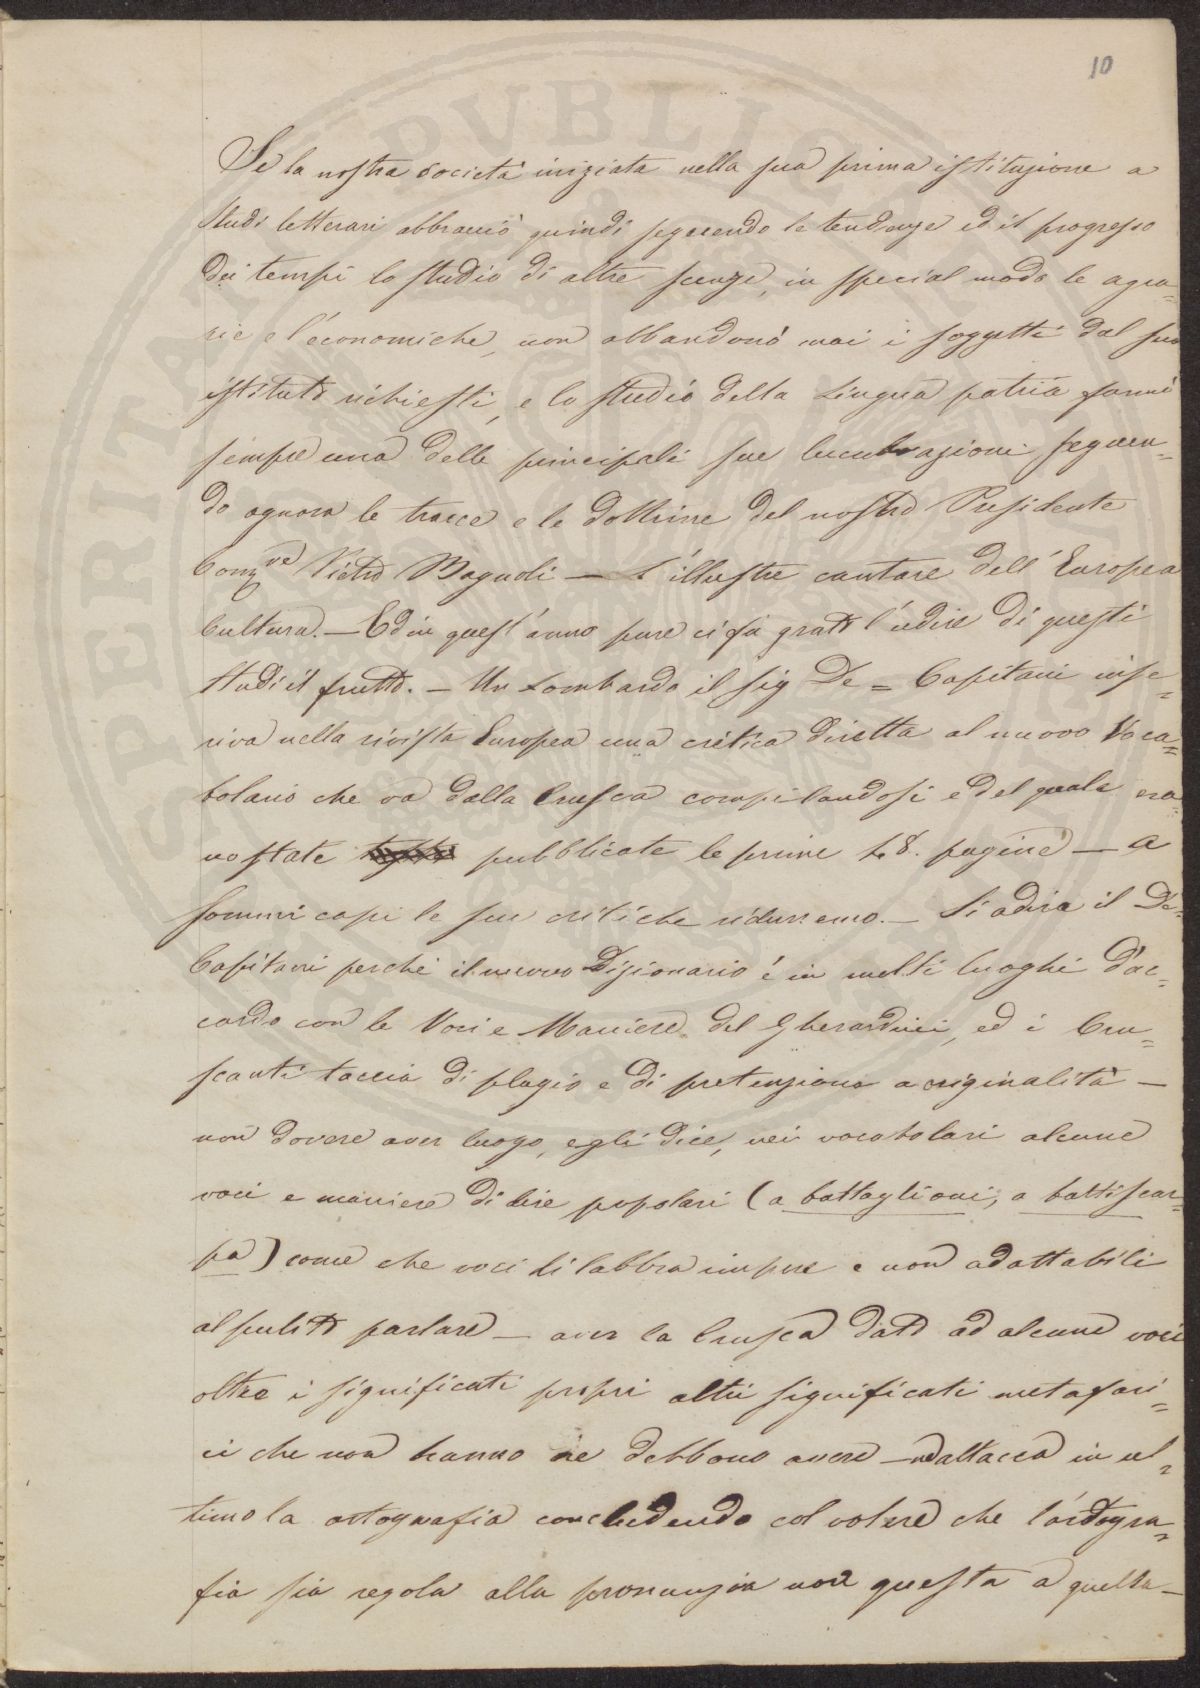 10
Se la nostra società iniziata nella sua prima istituzione a
studi letterari abbracciò quindi seguendo le tendenze ed il progresso
dei tempi lo studio di altre scenze, in special modo le agra-
rie e l'economiche, non abbandonò mai i soggetti dal suo
istituto richiesti, e lo studio della Lingua patria formò
sempre una delle principali sue lucubrazioni seguen-
do ognora le tracce e le dottrine del nostro Presidente
Comre Pietro Bagnoli — L'illustre cantore dell'Europea
Cultura. — Ed in quest'anno pure ci fu grato l'udire di questi
studi il frutto. — Un Lombardo il sig De = Capitani inse=
riva nella rivista Europea una critica diretta al nuovo Voca=
bolario che va dalla Crusca compilandosi e del quale era=
no state pubblicate le prime 48. pagine — a
sommi capi le sue critiche ridurremo. — Si adira il De=
Capitani perché il nuovo Dizionario è in molti luoghi d'ac=
cordo con le Voci e Maniere del Gherardini, ed i Cru=
scanti taccia di plagio e di pretenzione a originalità —
non dovere aver luogo, egli dice, nei vocabolari alcune
voci e maniere di dire popolari (a battaglioni, a battiscar=
pa) come che voci di labbra impure e non adattabili
al pulito parlare — aver la Crusca dato ad alcune voci
oltre i significati propri altri significati metafori=
ci che non hanno ne debbono avere — ed attacca in ul=
timo la ortografia concludendo col volere che l'ortogra=
fia sia regola alla pronunzia non questa a quella —
SPERITAT PVBLIC